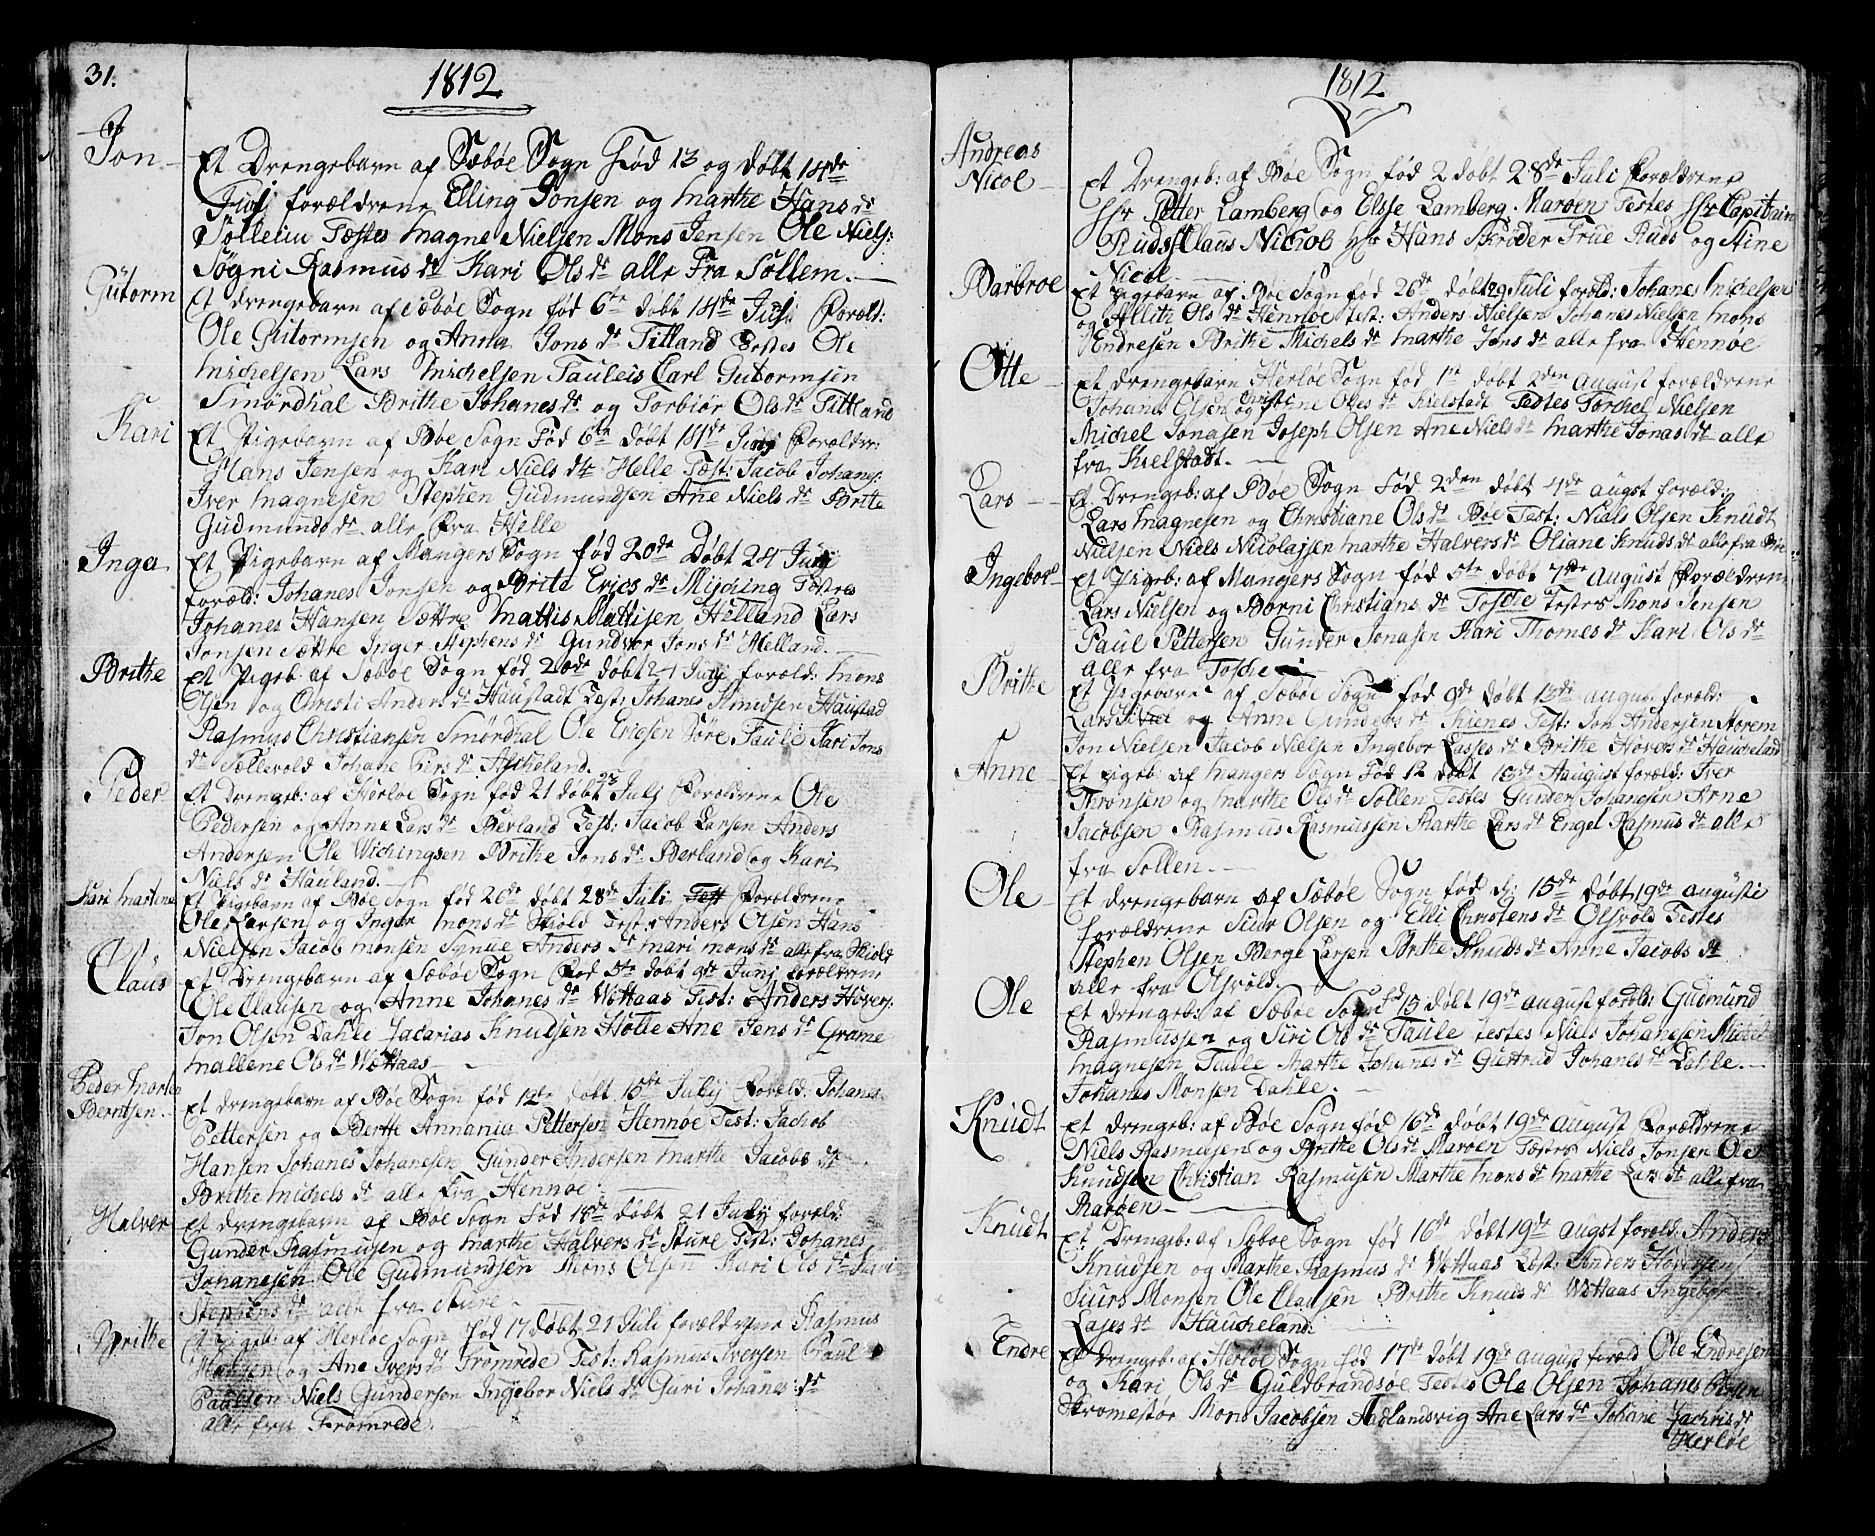 31.
1812
Jon
Et Drengebarn af Sæbøe Sogn Fød 13 og døbt 14de
Julj forældrene Elling Jonsen og Marthe Hans dr
Sølleim Testes Magne Nielsen Mons Jensen Ole Niels:
Søgni Rasmus dr Kari Ols dr alle Fra Søllem.
Gutorm
Et drengebarn af Sæbøe Sogn fød 6te døbt 14de Julj Foræld:
Ole Gutormsen og Anna Jons dr Titland Testes Ole
Michelsen Lars Michelsen Tauleis Carl Gutormsen
Smørdhal Brithe Johanes dr og Torbiør Ols dr Titland
Kari
Et Pigebarn af Bøe Sogn Fød 6te døbt 14de Julj Forældre:
Hans Jensen og Kari Niels dtr Helle Test: Jacob Johanes:
Iver Magnesen Stephen Gudmundsen Ane Niels dr Brite
Gudmunds dr alle Fra Helle
Inga
Et Pigebarn af Mangers Sogn fød 20de Døbt 24 Julj
foræld: Johanes Jonsen og Brite Erics dr Mijching Testes
Johanes Hansen Sættre Mattis Mattisen Helland Lars
Jonsen Sættre Inger Stephens dr Gundvor Jons dr Helland.
Brithe
Et Pigeb: af Sæbøe Sogn fød 20de døbt 24 Julj foræld: Mons
Olsen og Christi Anders dr Haustadt Test: Johanes Knudsen Haustad
Rasmus Christiansen Smørdhal Ole Ericsen Søre Taule Kari Jons
dr Sællevold Johane Iers dr Ascheland.
Peder
Et Drengeb: af Herløe Sogn fød 21 døbt 27 Julj Forældrene Ole
Pedersen og Anne Lars dr Berland Test: Jacob Larsen Anders
Andersen Ole Wichingsen Brithe Jons dr Berland og Kari
Niels dr Hauland.
Kari Martene
Et Pigebarn af Bøe Sogn fød 26de døbt 28de Juli Test Forældrene
Ole Larsen og Inger Mons dr Skiold Testes Anders Olsen Hans
Nielsen Jacob Monsen Synue Anders dr Mari Mons dr alle fra Skiold
Claus
Et Drengebarn af Sæbøe Sogn Fød 5te døbt 9de Junj forældrene
Ole Clausen og Anne Johanes dr Wottaas Test: Anders Hovers:
Jon Olsen Dahle Zacarias Knudsen Holte Ane Jens dr Grame
Mallene Ols dr Wottaas
Peder Morten
Berntsen
Et drengebarn af Bøe Sogn fød 12te døbt 15de Julij Foræld: Johanes
Pettersen og Berte Annaniu Pettersen Hennøe Test: Jachob
Hansen Johanes Johanesen Gunder Andersen Marthe Jacobs dr
Brithe Michels dr alle Fra Hennøe
Halver
Et drengebarn af Bøe Sogn Fød 18de døbt 21 Julij foræld:
Gunder Rasmusen og Marthe Halvers dr Sture Test: Johanes
Johanesen Ole Gudmundsen Mons Olsen Kari Ols dr Kari
Stephens dr alle fra Sture
Brithe
Et Pigeb: af Herløe Sogn fød 17 døbt 21 Juli forældrene Rasmus
Hansen og Ane Ivers dr Fromrede Test: Rasmus Iversen Paul
Paulsen Niels Gundersen Ingebor Niels dr Guri Johanes: dr
alle fra Fromrede.
1812
Andreas
Nicol
Et Drengeb: af Bøe Sogn fød 2 døbt 28de Juli Forældrene
Hr Petter Lamberg og Elsje Lamberg. Marøen Testes Hr Capitain
Ruds Claus Nicol Hr Hans Skrøder Frue Ruds og Aine
Nicol
Barbroe
Et Pigebarn af Bøe Sogn fød 26de døbt 29 Juli foræld: Johanes Michelsen
og Allithe Ols dr Hennøe Test: Anders Nielsen Johanes Nielsen Mons
Endresen Brithe Michels dr Marthe Jons dr alle fra Hennøe
Otte
Et drengebarn Herløe Sogn fød 1te døbt 2den August forældrene
Johanes Elsen og Christine Oles dr Kielstadt Testes Torchel Nielsen
Michel Jonasen Joseph Olsen Ane Niels dr Marthe Jonas dr alle
fra Kielstadt.
Lars
Et Drengeb: af Bøe Sogn Fød 2den døbt 4de augst foræld:
Lars Magnesen og Christiane Ols dr Bøe Test: Niels Olsen Knudt
Nielsen Niels Nicolajsen Marthe Halvers dr Oliane Knuds dr alle fra Bøe
Ingebor
Et Pigeb: af Mangers Sogn fød 5te døbt 7de August Forældrene
Lars Nielsen og Borni Christians dr Tosche Testes Mons Jensen
Paul Pettersen Gunder Jonasen Kari Thomes dr Kari Ols dr
alle fra Tosche
Brithe
Et Pigebarn af Sæbøe Sogn fød 9de døbt 14de august foræld:
Lars og Anne Gunders dr Kienes Test: Jon Andersen Storem
Jon Nielsen Jacob Nielsen Ingebor Lasses dr Brithe Hovers dr Haucheland
Anne
Et Pigeb: af Mangers Sogn Fød 12 døbt 16de Aaugust foræld: Iver
Thronsen og Marthe Ols dr Sollen Testes Gunder Johanesen Arne
Jacobsen Rasmus Rasmussen Marthe Lars dr Engel Rasmus dr alle
fra Sollen.
Ole
Et drengebarn af Sæbøe Sogn fød d: 15de døbt 19de augusti
forældrene Siur Olsen og Elli Christens dr Olsvold Testes
Stephen Olsen Berge Larsen Brithe Knuds dr Anne Jacobs dr
alle fra Olsvold.
Ole
Et drengeb: af Sæbøe Sogn fd 15 døbt 19de august foræld: Gudmund
Rasmussen og Siri Ols dr Taule testes Niels Johanesen Michel
Magnesen Taule Marthe Johanes dr Giertrud Johanes dr Dahle.
Johanes Monsen Dahle.
Knudt
Et drengeb: af Bøe Sogn fød 16de døbt 19de august Forældrene
Niels Rasmusen og Brithe Ols dr Marøen Testes Niels Jonsen Ole
Knudsen Christian Rasmusen Marthe Mons dr Marthe Lars dr alle fra
Marøen
Knudt
Et Drengeb: af Sæbøe Sogn fød 16de døbt 19de augst foræld: Anders
Knudsen og Marthe Rasmus dr Wottaas Test: Anders Hoversen
Siurs Monsen Ole Clausen Brithe Knuds dr Wottaas Ingebor
Lases dr Haucheland:
Endre
Et Drengeb: af Herløe Sogn fød 17de døbt 19de august foræld Ole Endresen
og Kari Ols dr Guldbrandsøe Testes Ole Olsen Johanes Olsen
Strømestor Mons Jacobsen Aadlandsvig Ane Lars dr Johane Zachris dr
Herløe